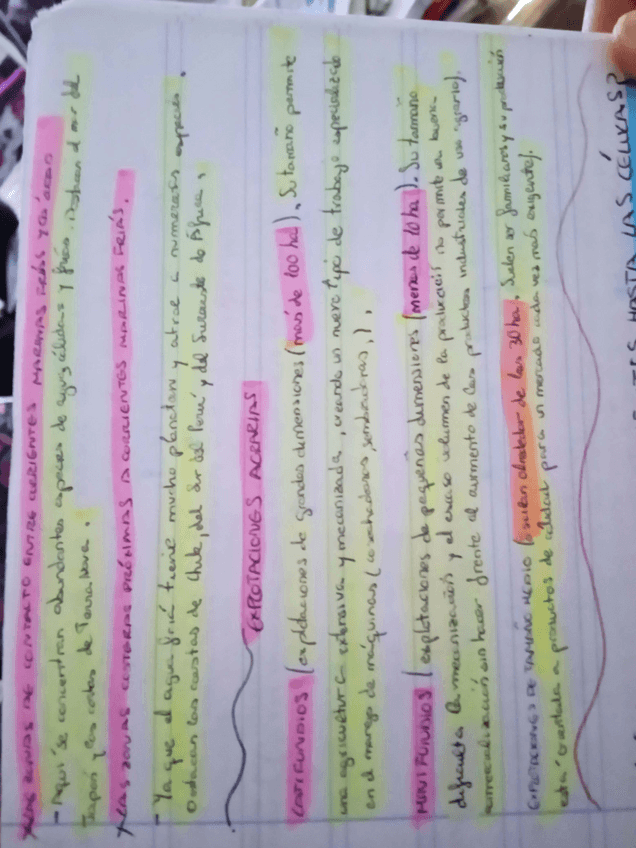 LAS ZONAS DE CONTACTO ENTRE CORRIENTES MARINAS FRÍAS Y CÁLIDAS
- Aquí se concentran abundantes especies de aguas cálidas y frías. Destacan el mar del
Japón y las costas de Terra Nova.
LAS ZONAS COSTERAS PRÓXIMAS A CORRIENTES MARINAS FRÍAS.
- Ya que el agua fría tiene mucho plancton y atrae a numerosas especies.
Destacan las costas de Chile, del Sur del Perú y del Suroeste de África.
EXPLOTACIONES AGRARIAS
LATIFUNDIOS (explotaciones de grandes dimensiones (más de 100 ha). Su tamaño permite
una agricultura extensiva y mecanizada, creando un nuevo tipo de trabajo especializado
en el manejo de máquinas (cosechadoras, sembradoras,).
MINIFUNDIOS (explotaciones de pequeñas dimensiones (menos de 10 ha). Su tamaño
dificulta la mecanización y el escaso volumen de la producció no permite su buena
comercialización sin hacer frente al aumento de los productos industriales de uso agrario).
EXPLOTACIONES DE TAMAÑO MEDIO (oscilan alrededor de las 30 ha. Suelen ser familiares y su producción
está orientada a productos de calidad para un mercado cada vez más exigente).
HASTA LAS CÉLULAS?